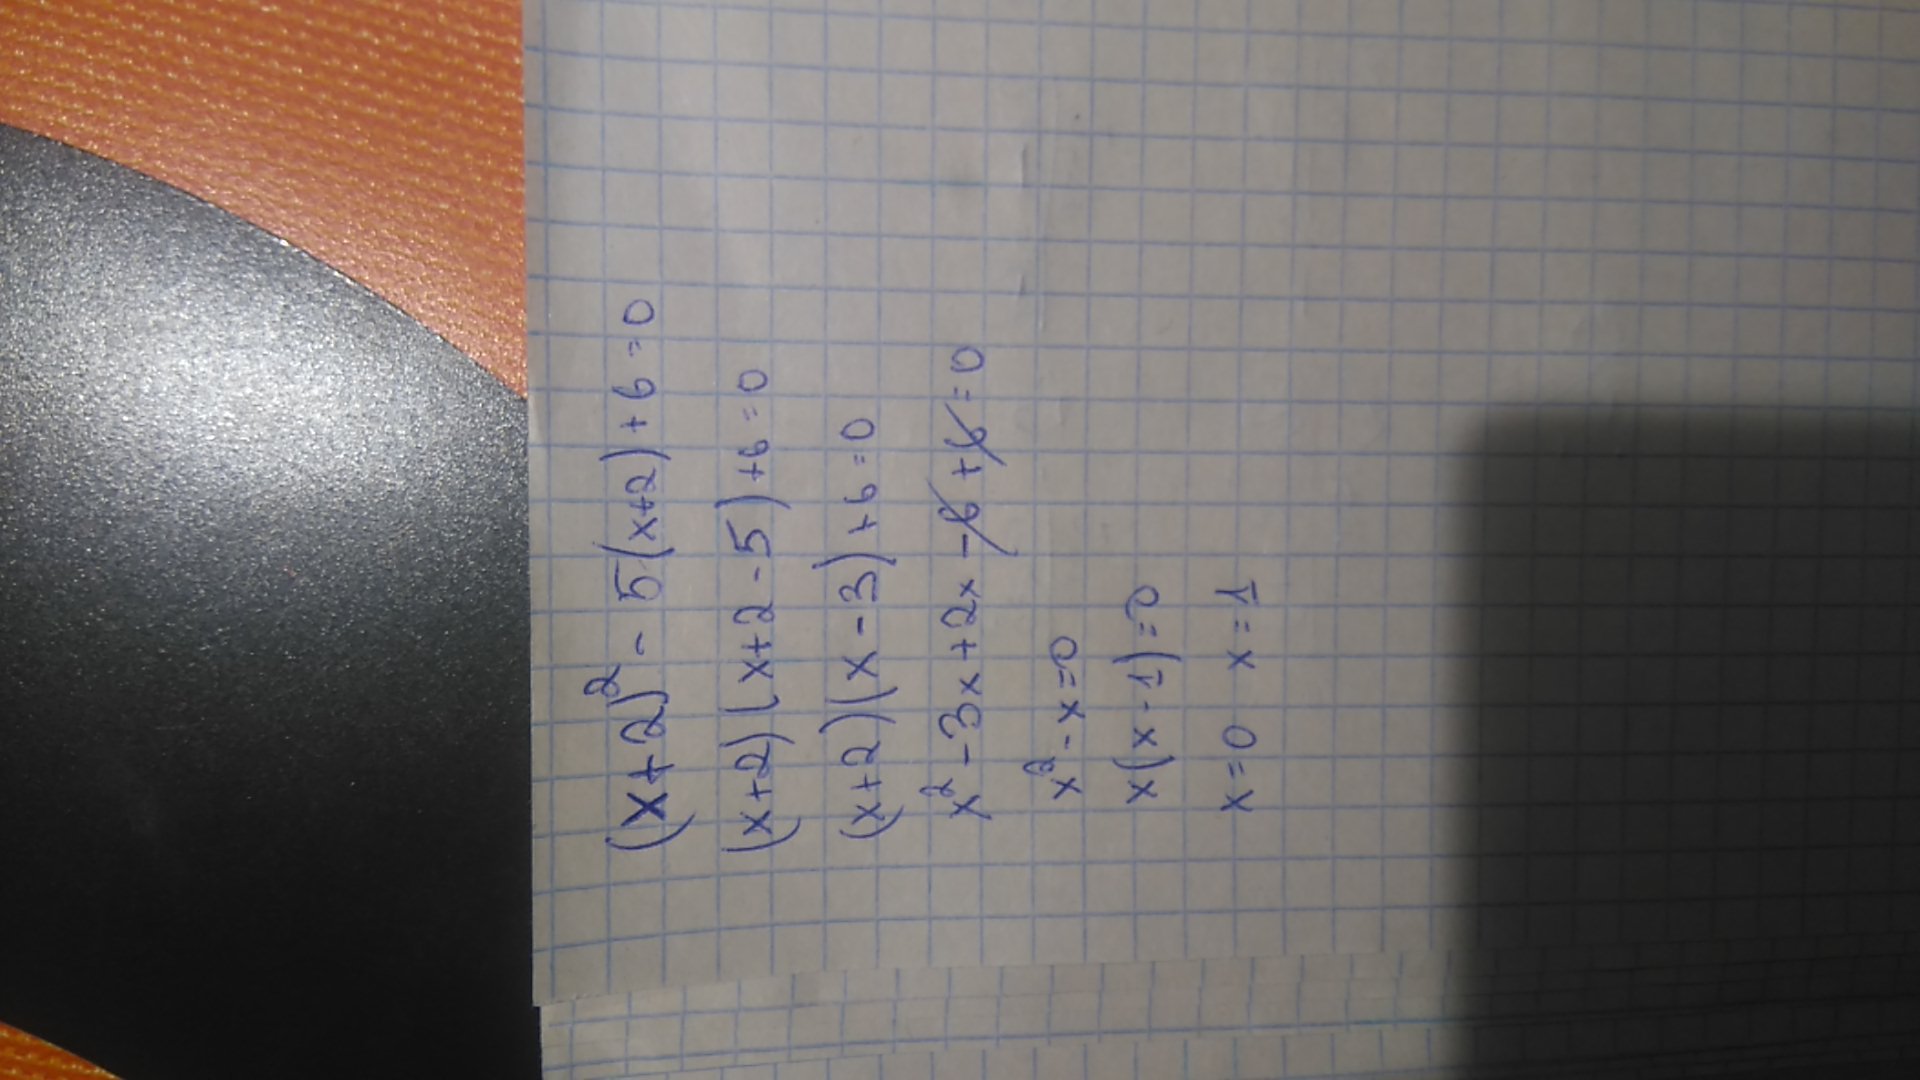 (x+2)² - 5(x+2)+6=0
(x+2)(x+2-5)+6=0
(x+2)(x-3)+6=0
x²-3x+2x-6+6=0
x²-x=0
x(x-1)=0
x=0 x=1